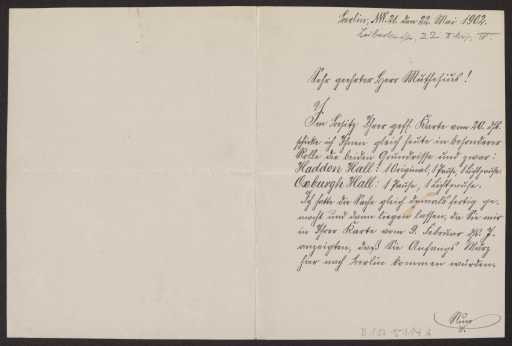 Berlin, NW. 21. den 22. Mai 1902.
22 II
Sehr geehrter Herr Muthesius!
Im Besitz Ihrer gefl. Karte vom 20. ds.
schicke ich Ihnen gleich heute in besonderer
Rolle die beiden Grundrisse und zwar:
Haddon Hall: 1 Original, 1 Pause, 1 Lichtpause.
Oxburgh Hall: 1 Pause, 1 Lichtpause.
Ich hatte die Sache gleich damals fertig ge-
macht und dann liegen lassen, da Sie mir
in Ihrer Karte vom 9. Februar ds. J.
anzeigten, daß Sie Anfangs März
hier nach Berlin kommen würden.